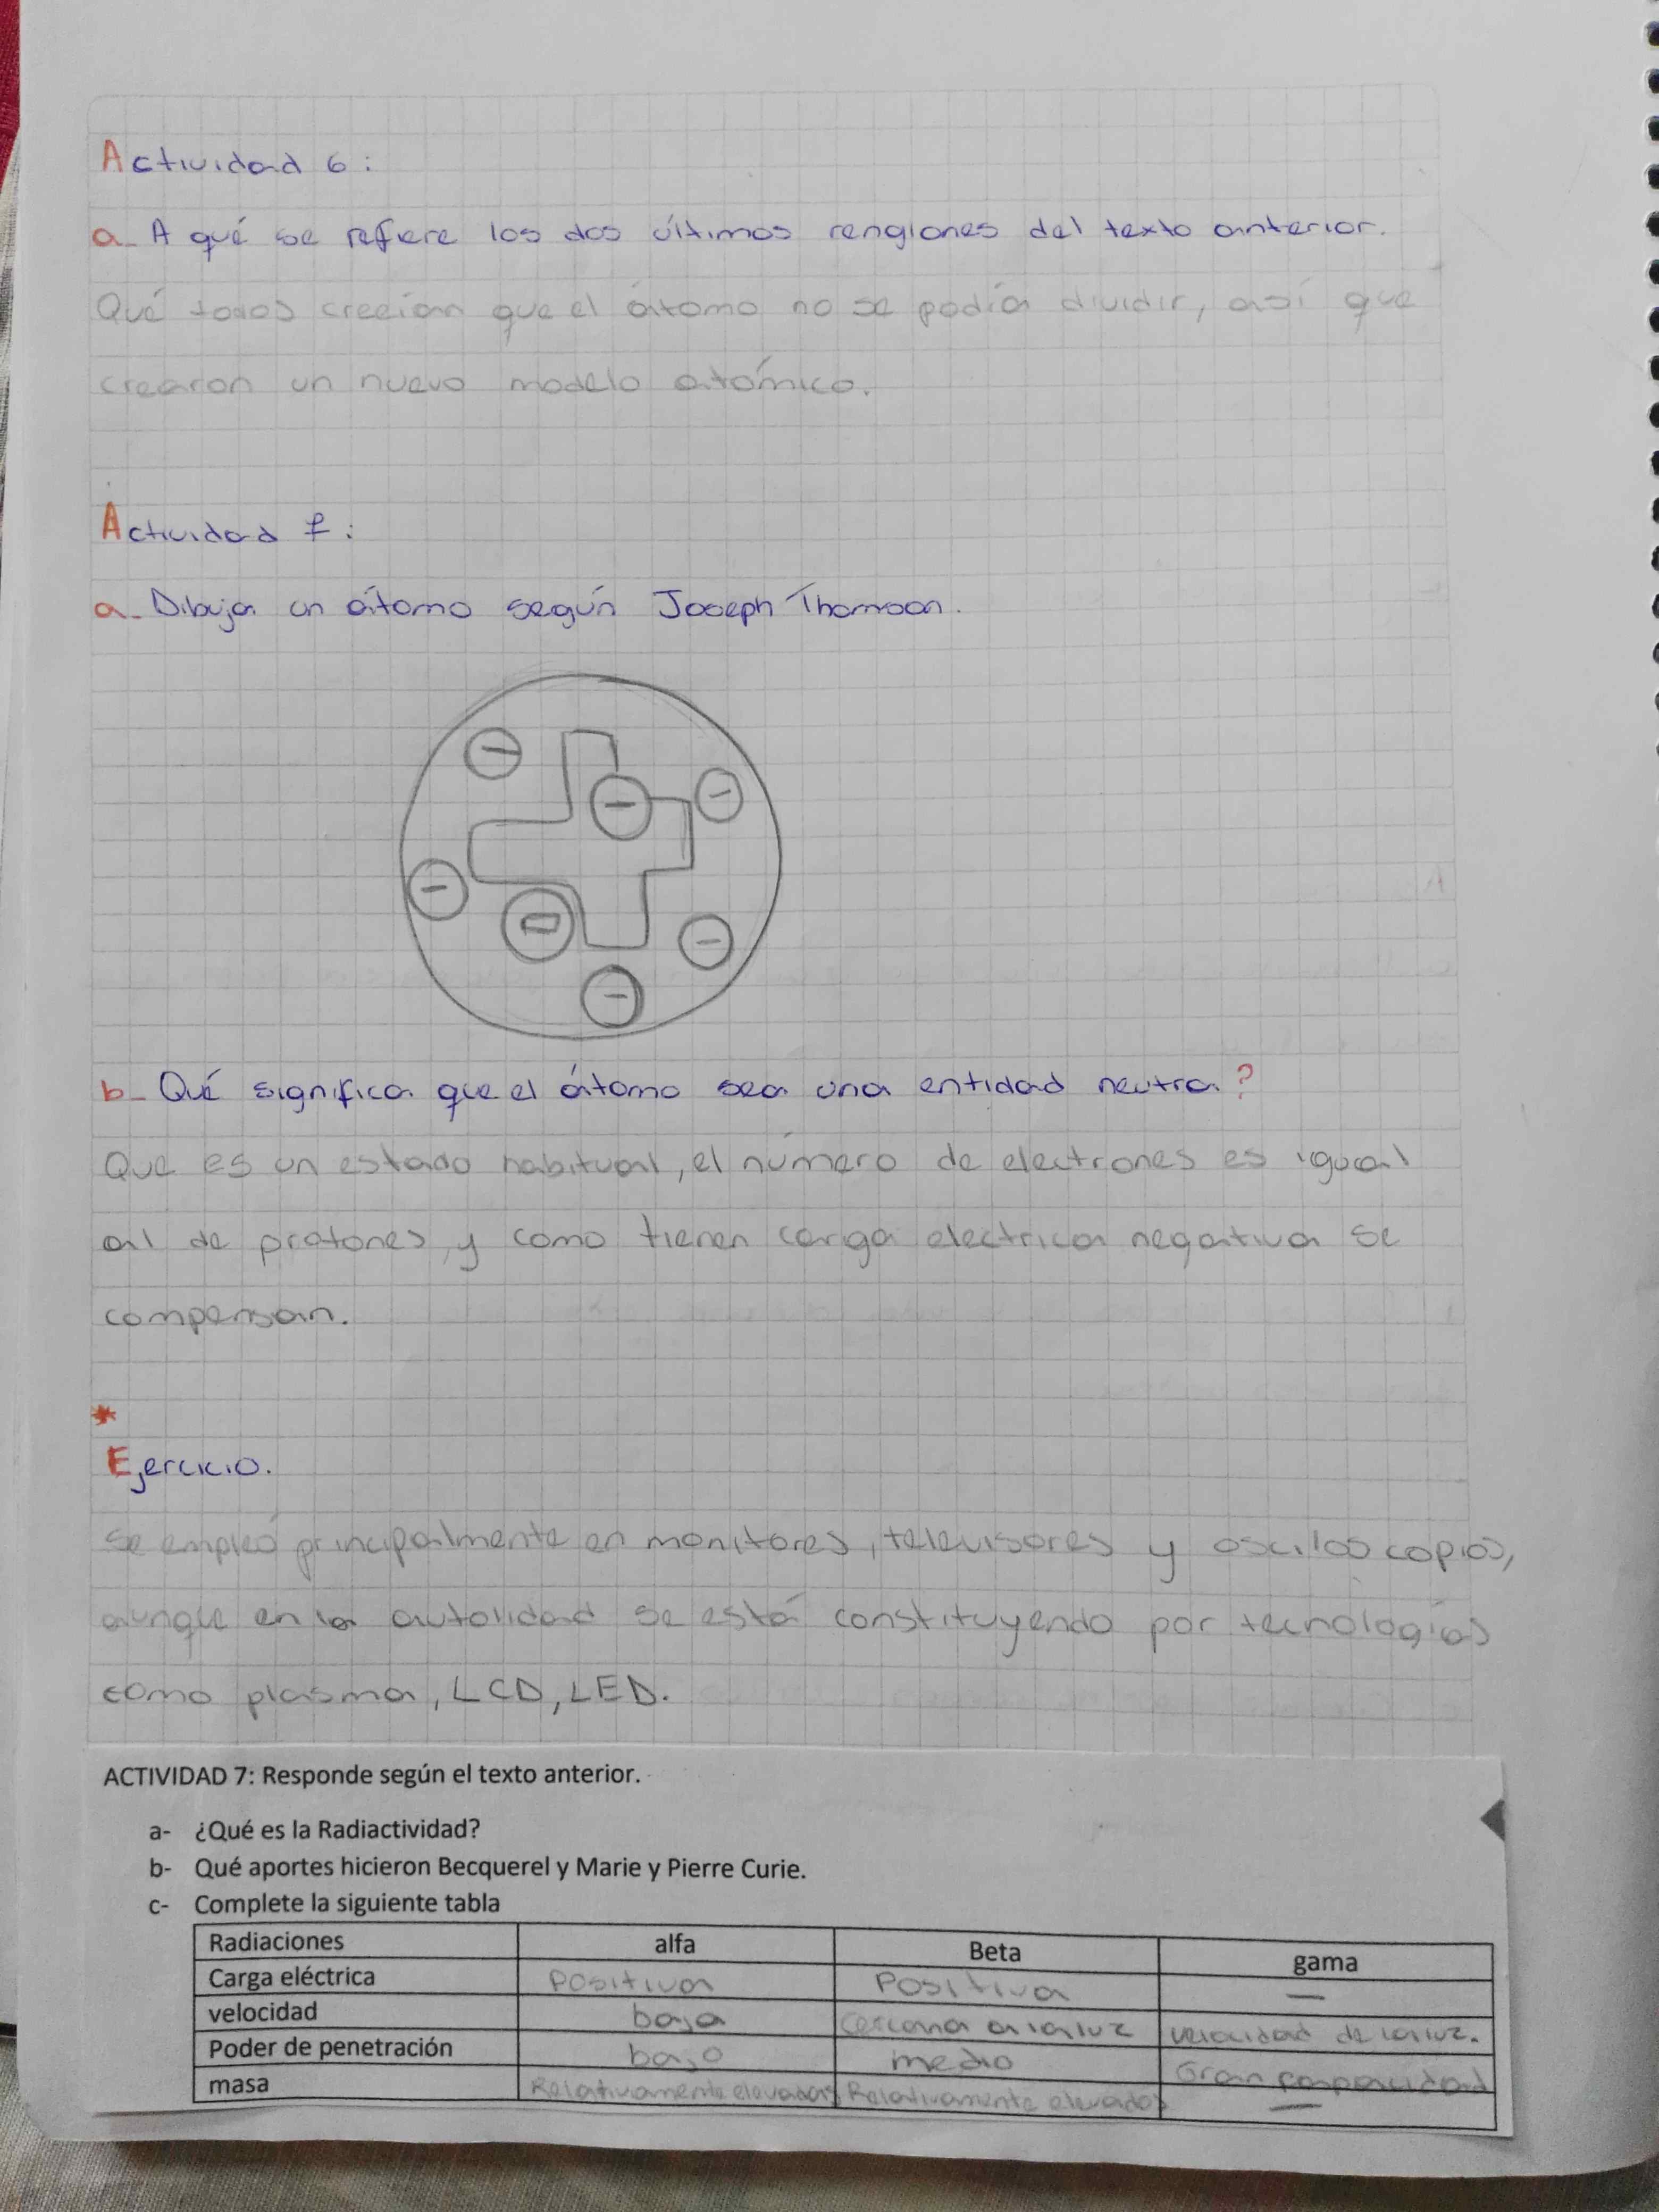 Actividad 6:
a- A qué se refiere los dos últimos renglones del texto anterior.
Qué todos creeían que el átomo no se podía dividir, así que
crearon un nuevo modelo atómico.
Actividad 7:
a- Dibuja un átomo según Joseph Thomson.
b- Qué significa que el átomo sea una entidad neutra?
Que es un estado habitual, el número de electrones es igual
al de protones, y como tienen carga electrica negativa se
compensan.
*
Ejercicio.
se empleó principalmente en monitores, televisores y osciloscopios,
aunque en la autolidad se está constituyendo por tecnologías
como plasma, LCD, LED.
ACTIVIDAD 7: Responde según el texto anterior.
a- ¿Qué es la Radiactividad?
b- Qué aportes hicieron Becquerel y Marie y Pierre Curie.
c- Complete la siguiente tabla
Radiaciones alfa Beta gama
Carga eléctrica Positiva Positiva —
velocidad baja cercana a la luz velocidad de la luz.
Poder de penetración bajo medio Gran capacidad
masa Relativamente elevadas Relativamente elevados —